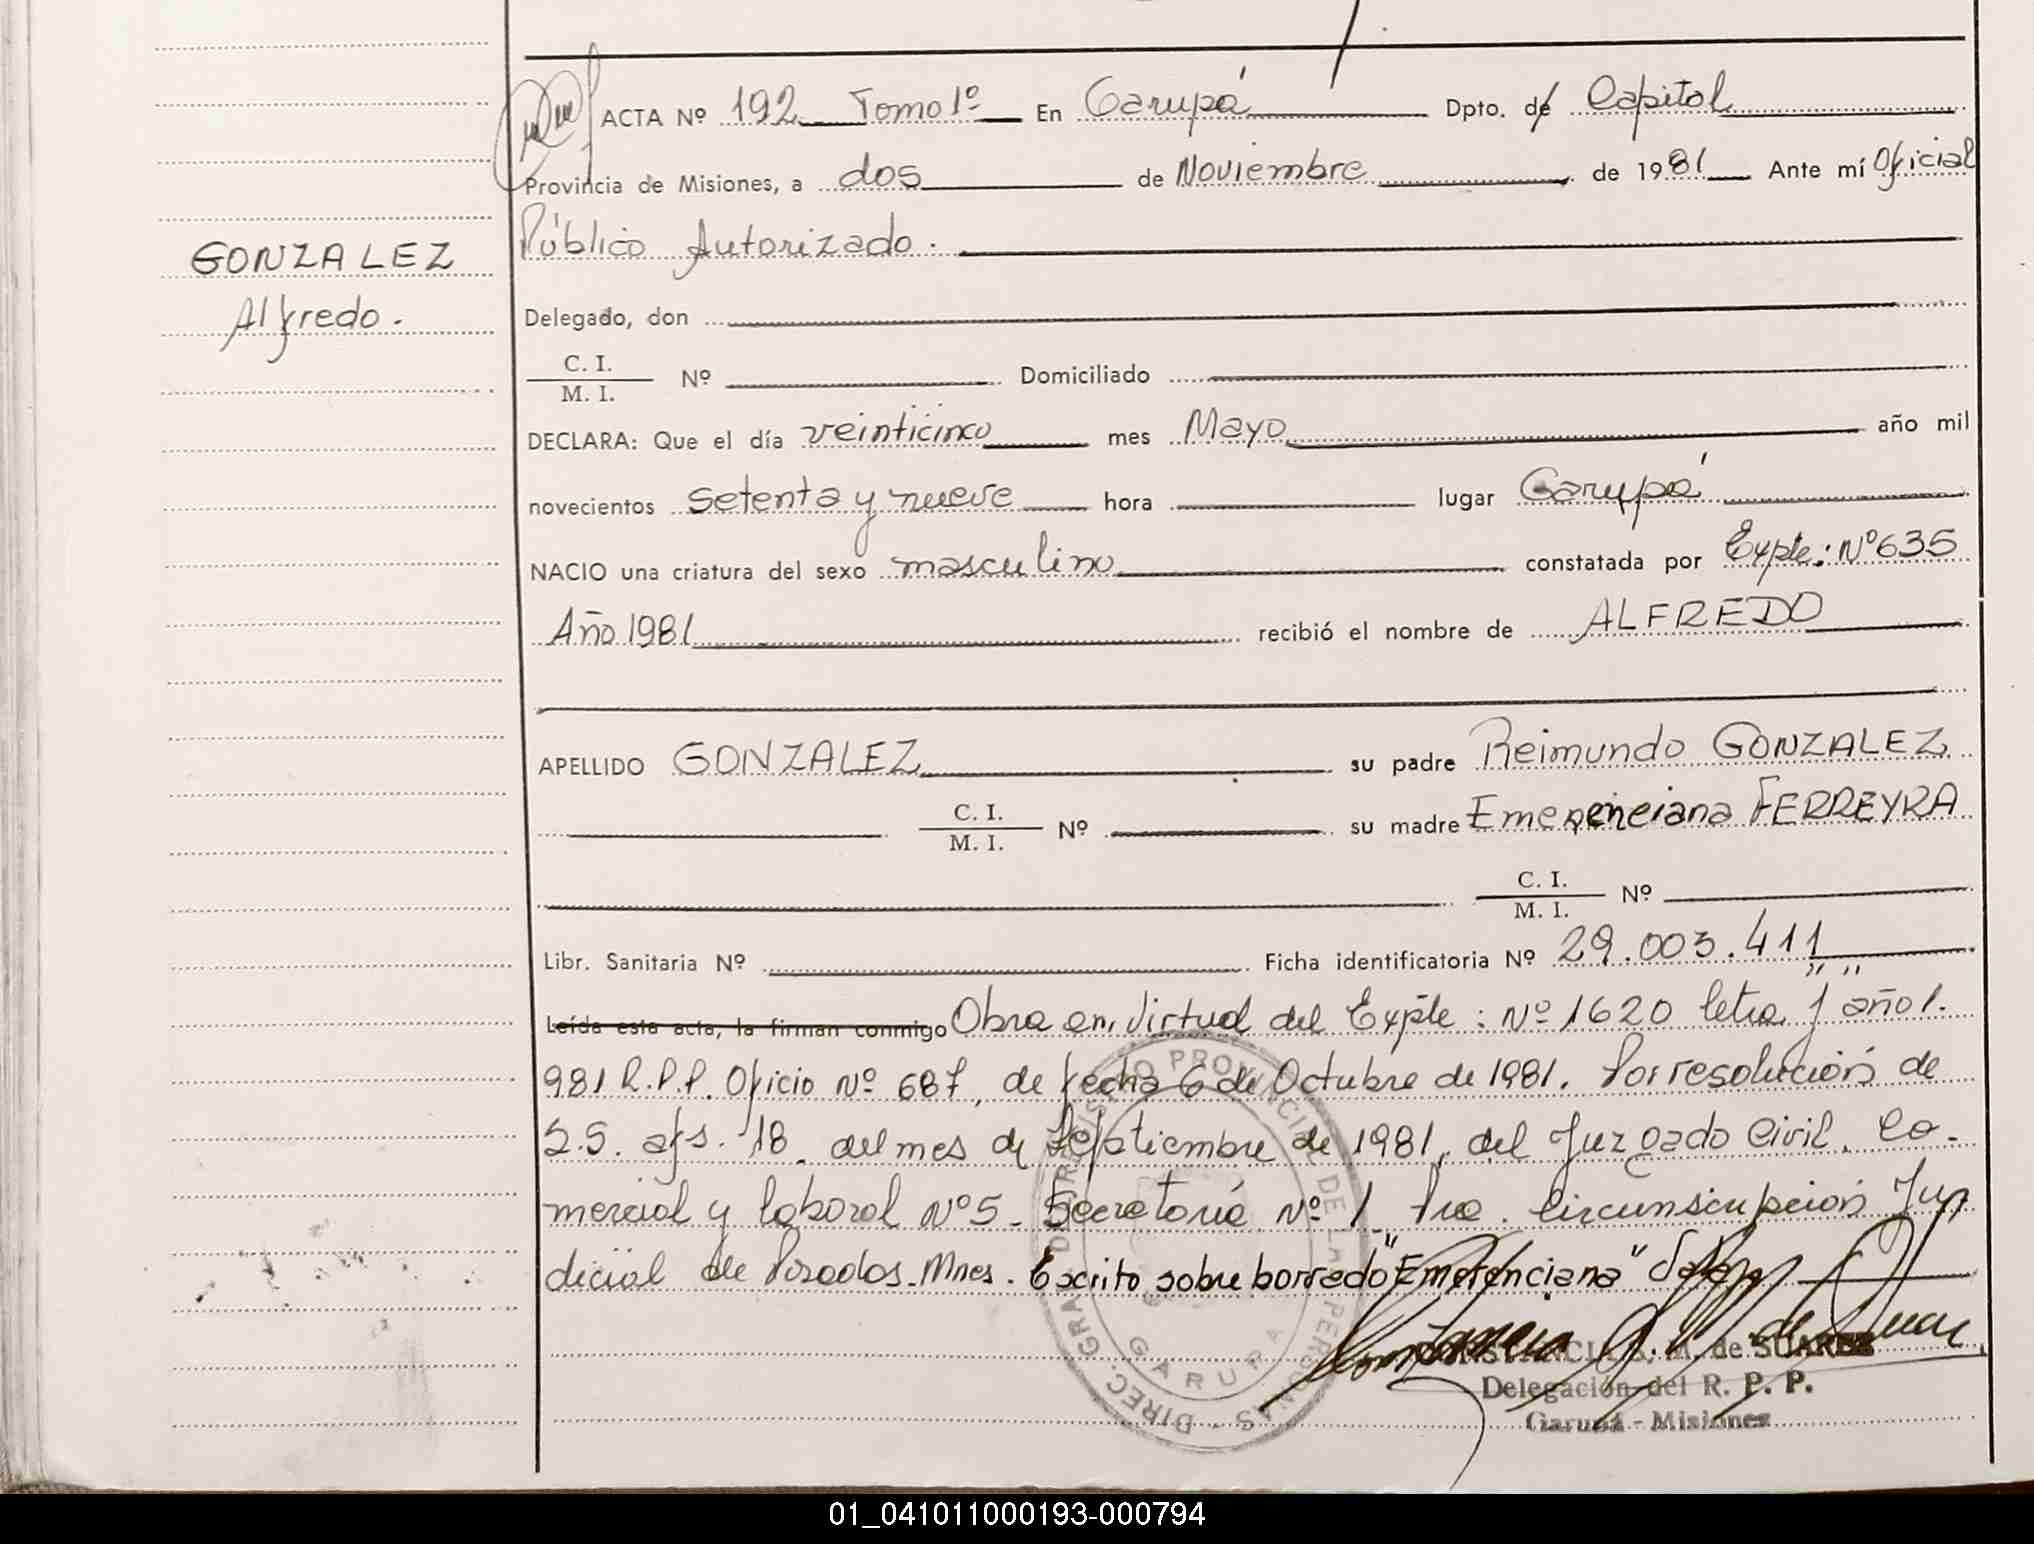 ACTA Nº 192 Tomo 1º En Garupá Dpto. de Capital
Provincia de Misiones, a dos de Noviembre de 1981 Ante mí Oficial
Público Autorizado.
GONZALEZ
Alfredo.
Delegado, don
C. I.
M. I. Nº Domiciliado
DECLARA: Que el día veinticinco mes Mayo año mil
novecientos setenta y nueve hora lugar Garupá
NACIO una criatura del sexo masculino constatada por Expte: Nº 635
Año 1981 recibió el nombre de ALFREDO
APELLIDO GONZALEZ su padre Reimundo GONZALEZ
C. I.
M. I. Nº su madre Emerenciana FERREYRA
C. I.
M. I. Nº
Libr. Sanitaria Nº Ficha identificatoria Nº 29.003.411
Leída esta acta, la firman conmigo Obra en Virtud del Expte: Nº 1620 letra "J" año 1.
981 R.P.P. Oficio Nº 687, de fecha 6 de Octubre de 1981. Por resolución de
S.S. a fs. 18 del mes de Septiembre de 1981, del Juzgado Civil, Co-
mercial y laboral Nº 5. Secretaría Nº 1 Pra. Circunscripción Ju
dicial de Posadas. Mnes. Escrito sobre borrado "Emerenciana"
DIREC. GRAL. DEL REGISTRO PROVINCIAL DE LAS PERSONAS
GARUPA
CONSTANCIA S. M. de SUAREZ
Delegación del R. P. P.
Garupá - Misiones
01_041011000193-000794